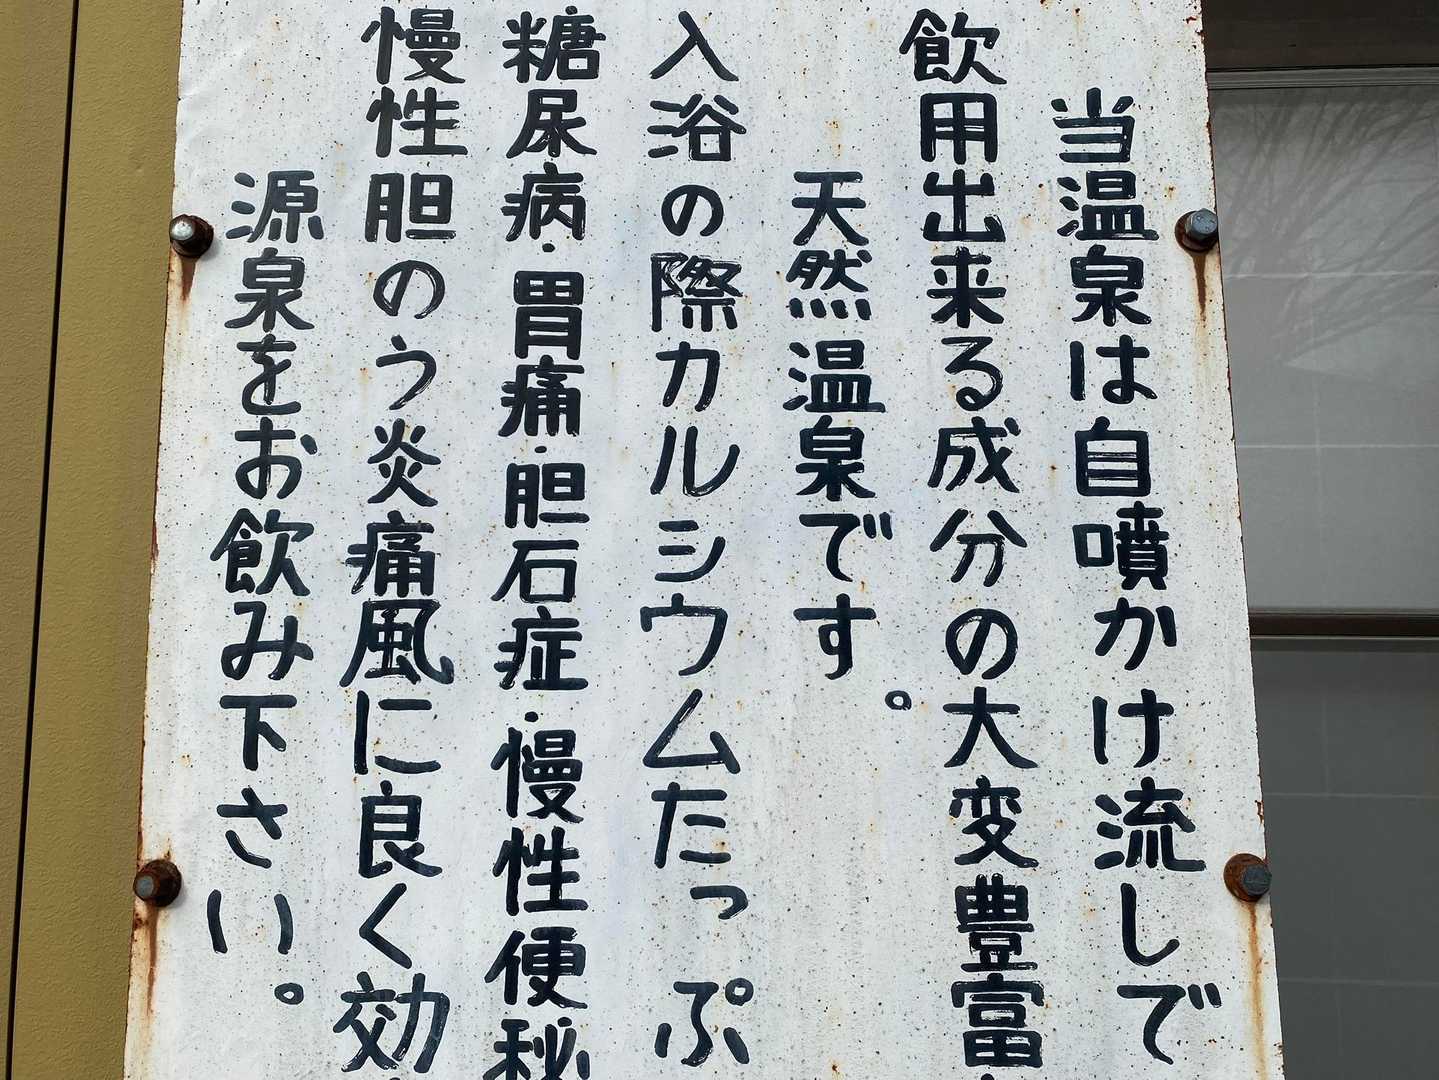 当温泉は自噴かけ流しで
飲用出来る成分の大変豊富
天然温泉です。
入浴の際カルシウムたっぷ
糖尿病・胃痛・胆石症・慢性便秘
慢性胆のう炎痛風に良く効
源泉をお飲み下さい。